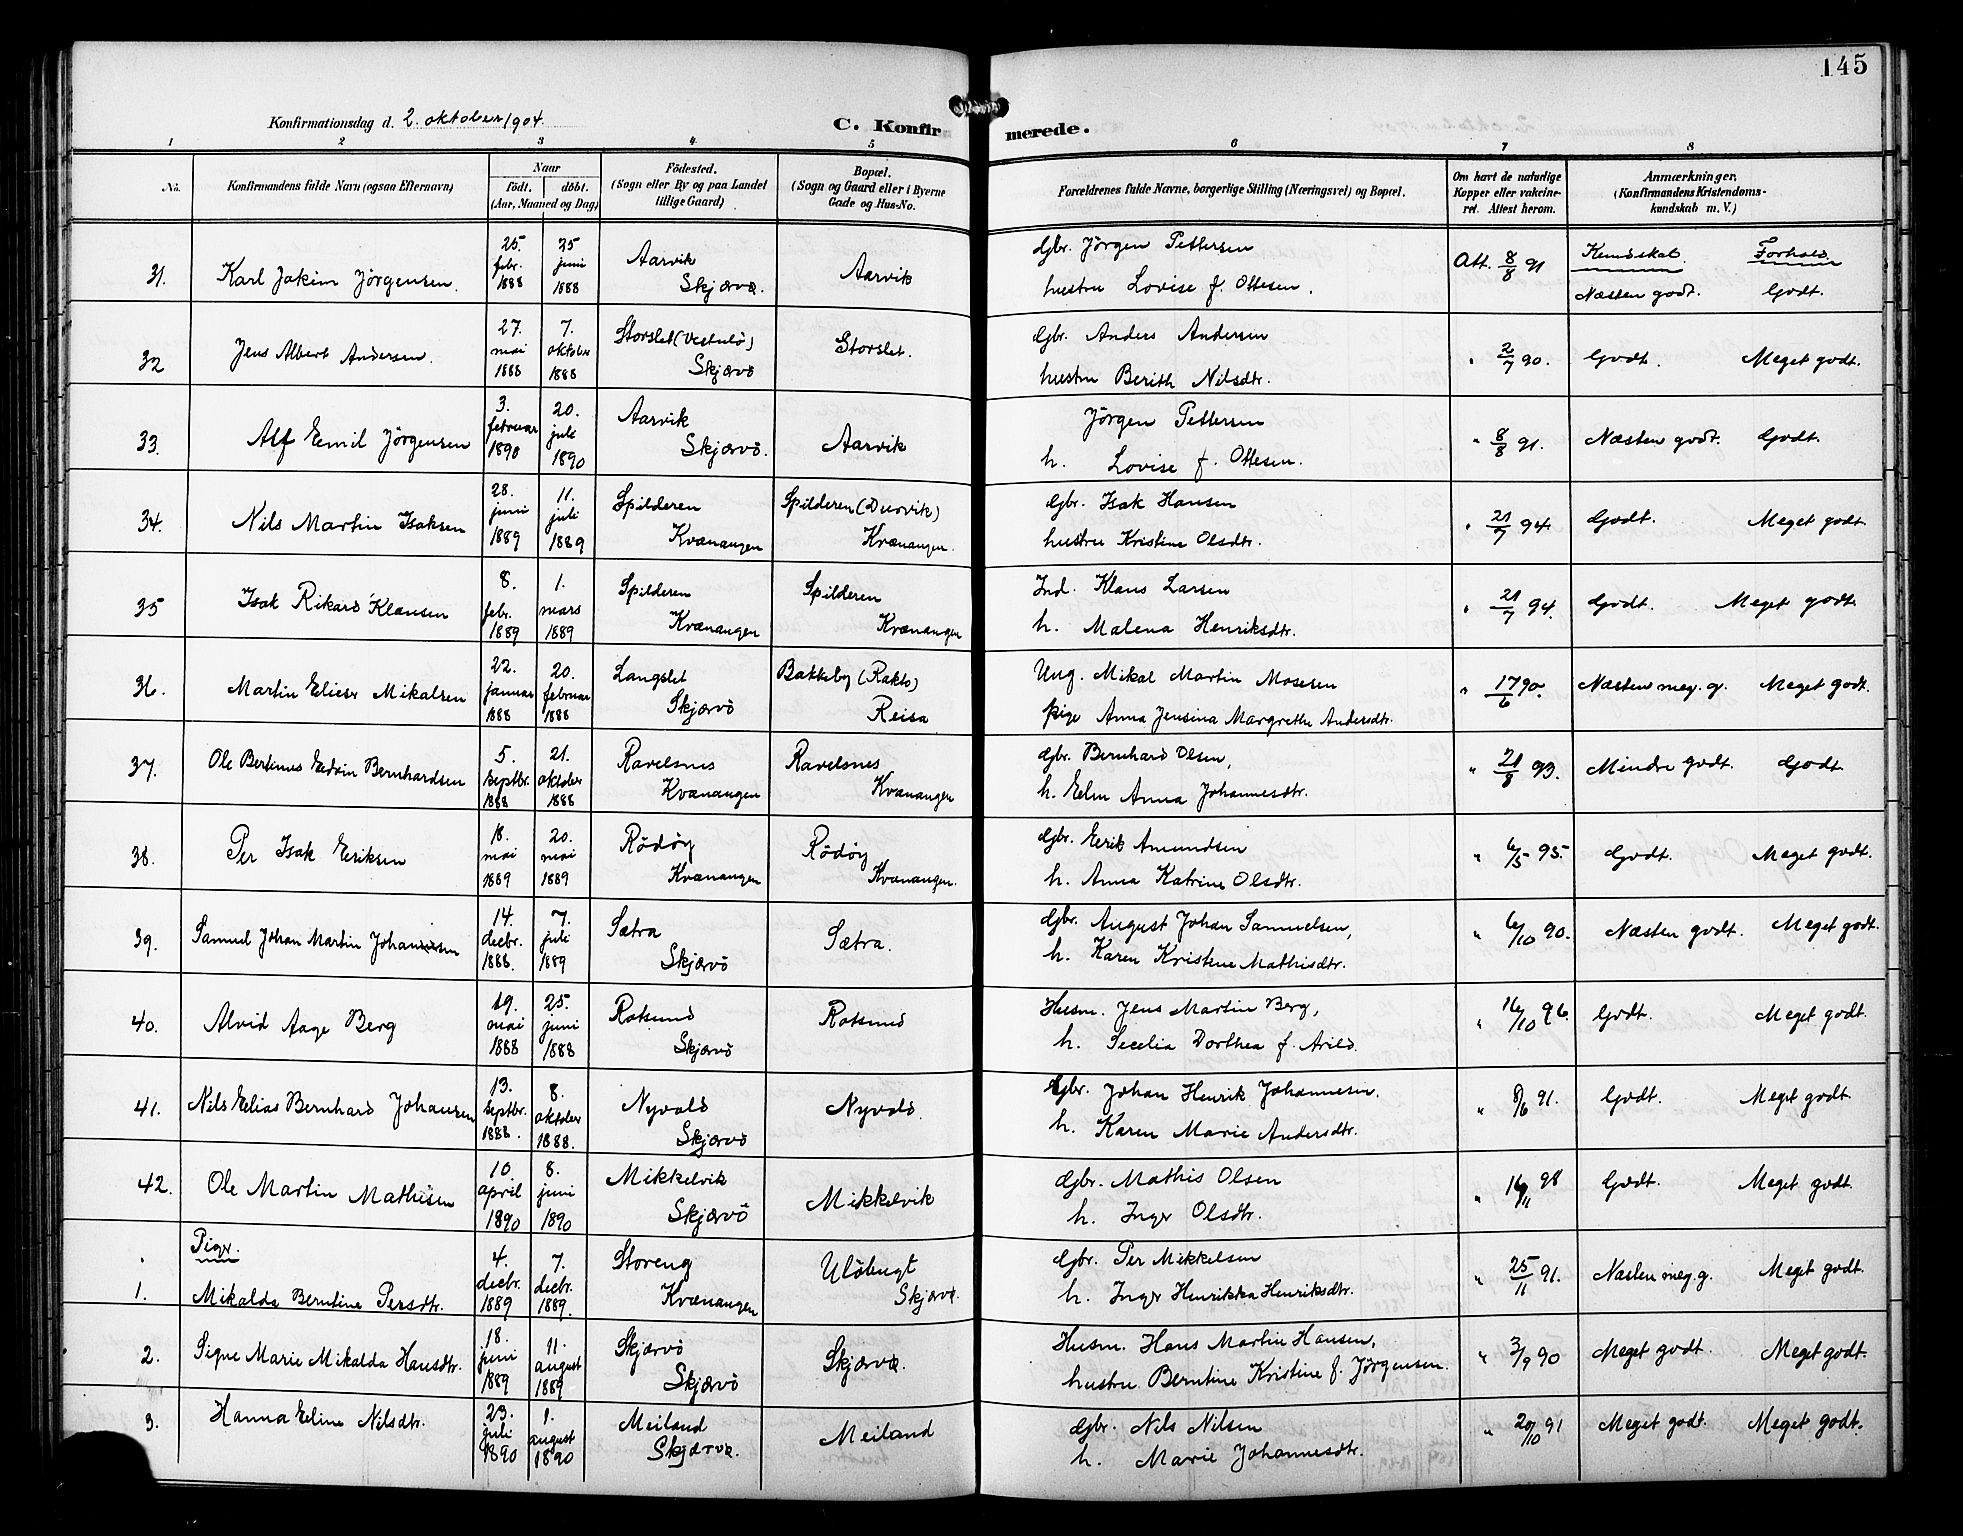 145
Konfirmationsdag d. 2. oktober 1904.
C. Konfirmerede.
1 2 3 4 5 6 7 8
No.
Konfirmandens fulde Navn (ogsaa Efternavn)
Naar
födt. döbt.
(Aar, Maaned og Dag)
Födested.
(Sogn eller By og paa Landet
tillige Gaard)
Bopæl.
(Sogn og Gaard eller i Byerne
Gade og Hus-No.
Forældrenes fulde Navne, borgerlige Stilling (Næringsvei) og Bopæl.
Om havt de naturlige
Kopper eller vakcine-
ret. Attest herom.
Anmærkninger.
(Konfirmandens Kristendoms-
kundskab m. V.)
31. Karl Jakim Jörgensen.
25. febr. 1888
25 juni 1888
Aarvik
Skjærvö.
Aarvik
Gbr. Jörgen Pettersen
hustru Lovise f. Ottesen.
Att. 8/8 91
Kundskab. Forhold.
Næsten godt. Godt.
32 Jens Albert Andersen.
27. mai 1888
7. oktober 1888
Storslet (Vestulö)
Skjærvö
Storslet.
Gbr. Anders Andersen
hustru Berith Nilsdtr.
" 2/7 90.
Godt. Meget godt.
33. Alf Emil Jörgensen
3. februar 1890
20. juli 1890
Aarvik
Skjærvö.
Aarvik
Jörgen Pettersen
h. Lovise f. Ottesen.
" 8/8 91.
Næsten godt. Godt.
34. Nils Martin Isaksen
28. juni 1889
11. juli 1889
Spilderen
Kvænangen
Spilderen (Durvik)
Kvænangen.
Gbr. Isak Hansen
hustru Kristine Olsdtr.
" 21/7 94.
Godt. Meget godt
35 Isak Rikard Klausen
8. febr. 1889
1. mars 1889
Spilderen
Kvænangen
Spilderen
Kvænangen
Ind. Klaus Larsen
h. Malena Henriksdtr.
" 21/7 94.
Godt. Meget godt.
36. Martin Elieser Mikalsen
22. januar 1888
20. februar 1888
Langslet
Skjærvö
Bakkeby (Rakto)
Reisa
Ung. Mikal Martin Mosesen
pige Anna Jensina Margrethe Andersdtr.
" 17/6 90.
Næsten meg. g. Meget godt.
37. Ole Bertinus Edvin Bernhardsen
5. septbr. 1888
21. oktober 1888
Ravelsnes
Kvænangen
Ravelsnes
Kvænangen
Gbr. Bernhard Olsen,
h. Elen Anna Johannesdtr.
" 21/8 93.
Mindre godt. Godt.
38. Per Isak Eriksen
18. mai 1889
20. mai 1889
Rödöy
Kvænangen
Rödöy
Kvænangen.
Gbr. Erik Amundsen
h. Anna Katrine Olsdtr.
" 6/5 95.
Godt. Meget godt.
39. Samuel Johan Martin Johansen
14. decbr. 1888.
7. juli 1889
Sætra
Skjærvö
Sætra.
Gbr. August Johan Samuelsen,
h. Karen Kristine Mathisdtr.
" 6/10 90.
Næsten godt. Meget godt.
40. Alvid Aage Berg
19. mai 1888
25. juni 1888
Rotsund
Skjærvö
Rotsund
Husm. Jens Martin Berg,
h. Secelia Dorthea f. Arild.
" 16/10 96.
Godt. Meget godt.
41. Nils Elias Bernhard Johansen
13. septbr. 1888.
8. oktober 1888.
Nyvold
Skjærvö
Nyvold.
Gbr. Johan Henrik Johannesen.
h. Karen Marie Andersdtr.
" 8/6 91.
Godt. Meget godt.
42. Ole Martin Mathisen
10. april 1890
8. juni 1890
Mikkelvik
Skjærvö
Mikkelvik
Gbr. Mathis Olsen
h. Inger Olsdtr.
" 16/11 98
Godt. Meget godt.
Piger.
1. Mikalda Berntine Persdtr.
4. decbr. 1889
7. decbr. 1889.
Storeng
Kvænangen
Ulöbugt
Skjærvö.
Gbr. Per Mikkelsen
h. Inger Henrikka Henriksdtr.
" 25/11 91.
Næsten meg. g. Meget godt.
2. Signe Marie Mikalda Hansdtr.
18. juni 1889
11. august 1889
Skjærvö
Skjærvö
Skjærvö.
Husm. Hans Martin Hansen,
hustru Berntine Kristine f. Jörgensen.
" 3/9 90
Meget godt. Meget godt.
3. Hanna Eline Nilsdtr.
23. juli 1890
1. august 1890
Meiland
Skjærvö.
Meiland
Gbr. Nils Nilsen
h. Marie Johannesdtr.
" 20/10 91
Meget godt. Meget godt.